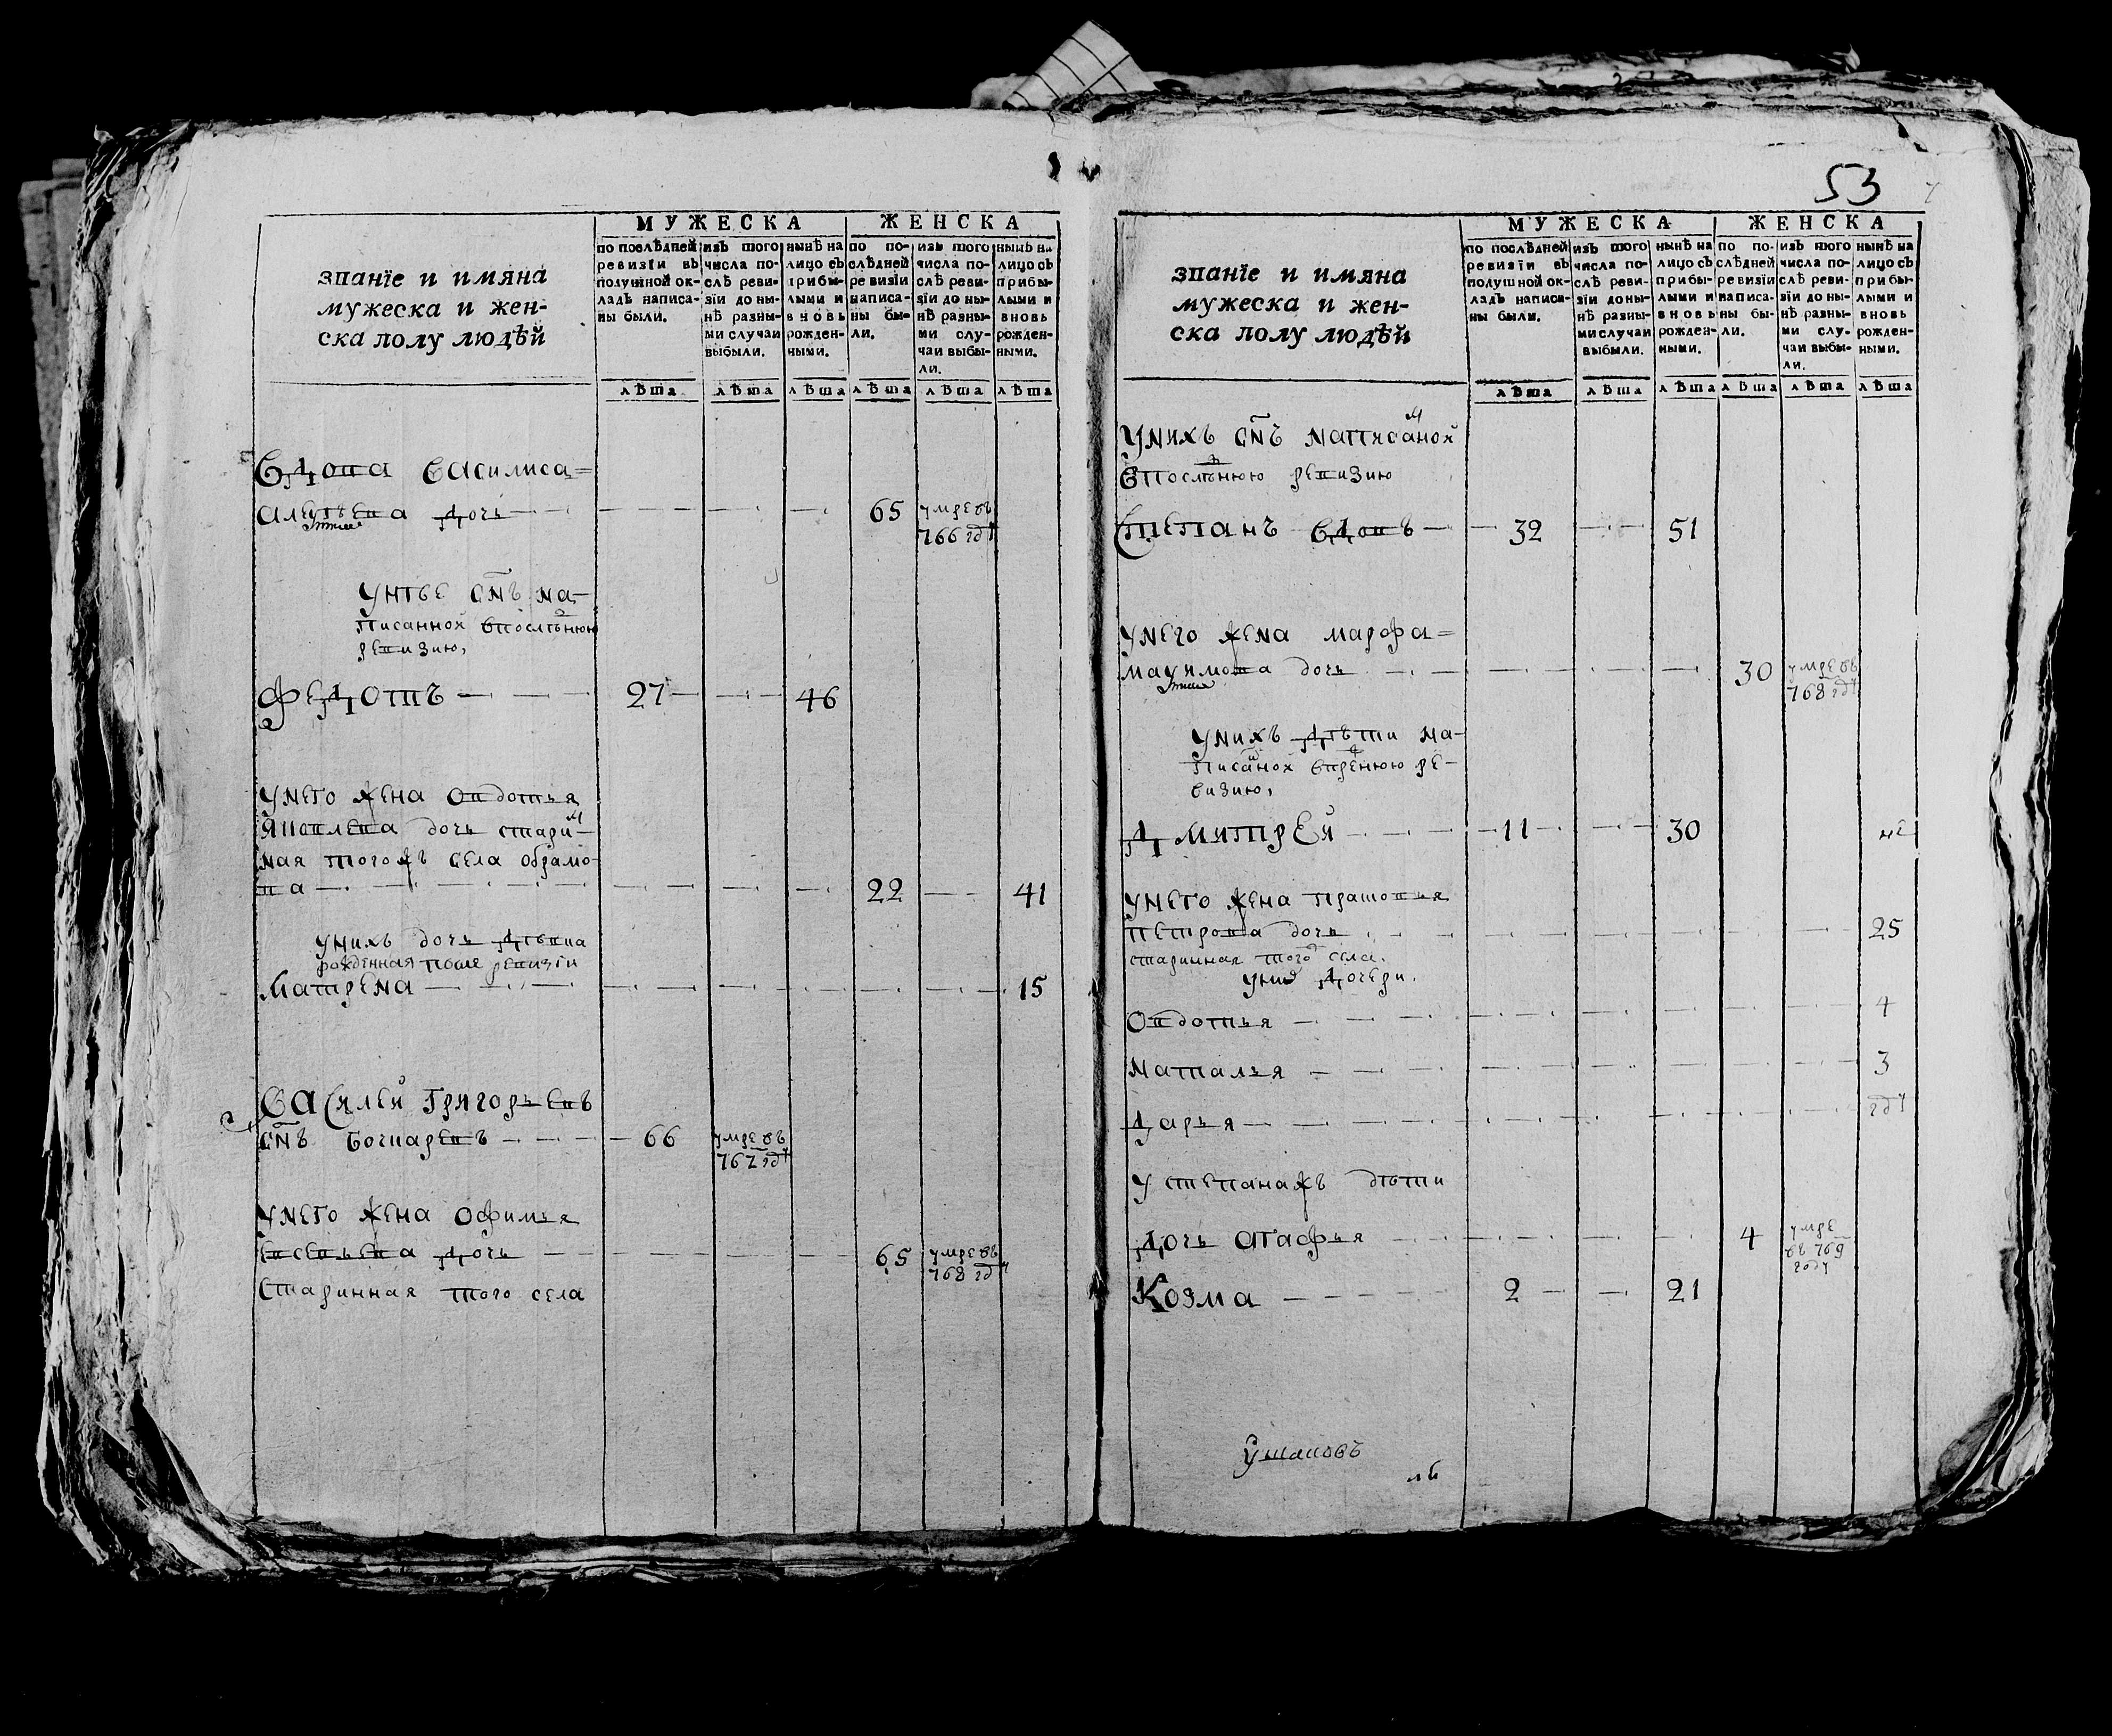 званїе и имяна
мужеска и жен-
ска полу людѣй
МУЖЕСКА
по послѣдней
ревизїи въ
подушной ок-
ладъ написа-
ны были.
изъ того
числа по-
слѣ реви-
зїи до ны-
нѣ разны-
ми случаи
выбыли.
нынѣ на
лицо съ
прибы-
лыми и
вновь
рожден-
ными.
ЖЕНСКА
по по-
слѣдней
ревизїи
написа-
ны бы-
ли.
изъ того
числа по-
слѣ реви-
зїи до ны-
нѣ разны-
ми слу-
чаи выбы-
ли.
нынѣ на
лицо съ
прибы-
лыми и
вновь
рожден-
ными.
лѣта лѣта лѣта лѣта лѣта лѣта
Вдова василиса=
дочь 65 умре въ
766 году
унѣе снъ на-
писанной впослѣнюю
ревизию,
Федотъ 27 46
унего жена овдотья
яковлева дочь стари-
ная тогожъ села абрамо-
ва 22 41
унихъ дочь девка
рожденная после ревизїи
Матрена 15
Василей григорьевъ
снъ бочкаревъ 66 умре въ
767 году
унего жена офимья
евсевьева дочь 65 умре въ
768 году
Старинная того села
53
званїе и имяна
мужеска и жен-
ска полу людѣй
МУЖЕСКА
по послѣдней
ревизїи въ
подушной ок-
ладъ написа-
ны были.
изъ того
числа по-
слѣ реви-
зїи до ны-
нѣ разны-
ми случаи
выбыли.
нынѣ на
лицо съ
прибы-
лыми и
вновь
рожден-
ными.
ЖЕНСКА
по по-
слѣдней
ревизїи
написа-
ны бы-
ли.
изъ того
числа по-
слѣ реви-
зїи до ны-
нѣ разны-
ми слу-
чаи выбы-
ли.
нынѣ на
лицо съ
прибы-
лыми и
вновь
рожден-
ными.
лѣта лѣта лѣта лѣта лѣта лѣта
унихъ снъ написаной
впослѣнюю ревизию
Степанъ вдовъ 32 51
унего жена марфа=
дочь 30 умре въ
768 году
унихъ дѣти на-
писаной впрежнюю ре-
визию,
Дмитрей 11 30
унего жена праковья
петрова дочь 25
старинная того села.
уних дочери.
Овдотья 4
Наталья 3
Дарья году
у степанажъ дѣти
дочь агафья 4 умре
въ 769
году
Козма 2 21
Ушаковъ